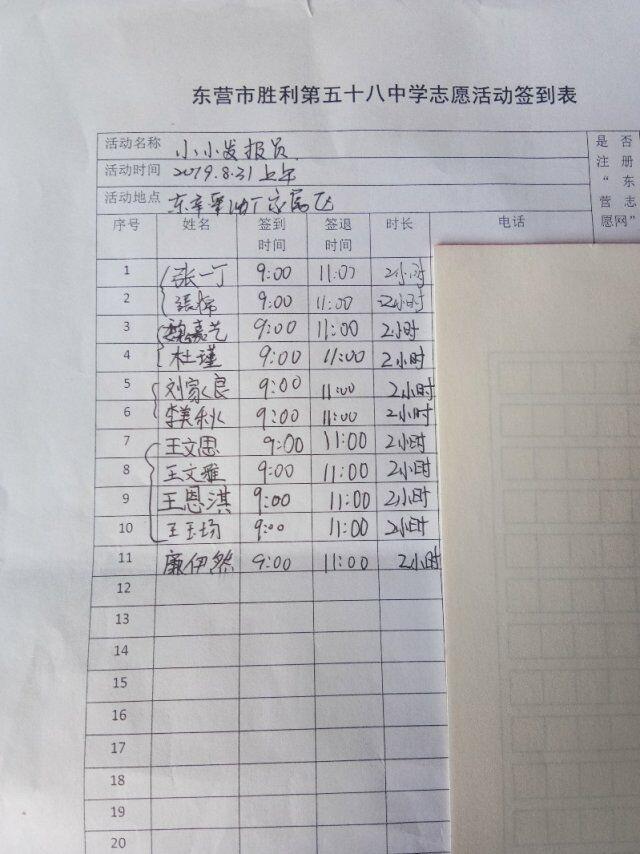 东营市胜利第五十八中学志愿活动签到表
活动名称 小小发报员
活动时间 2019.8.31上午
活动地点 东辛采油厂家属区
是否注册“东营志愿网”
序号 姓名 签到时间 签退时间 时长 电话
1 张一丁 9:00 11:00 2小时
2 張 9:00 11:00 2小时
3 魏嘉艺 9:00 11:00 2小时
4 杜瑾 9:00 11:00 2小时
5 刘家良 9:00 11:00 2小时
6 李美秋 9:00 11:00 2小时
7 王文思 9:00 11:00 2小时
8 王文雅 9:00 11:00 2小时
9 王恩淇 9:00 11:00 2小时
10 王玉场 9:00 11:00 2小时
11 廉伊然 9:00 11:00 2小时
12
13
14
15
16
17
18
19
20